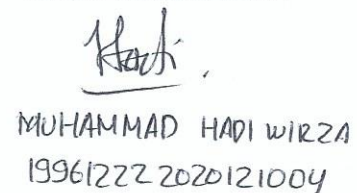 Hadi.
MUHAMMAD HADI WIRZA
199612222020121004